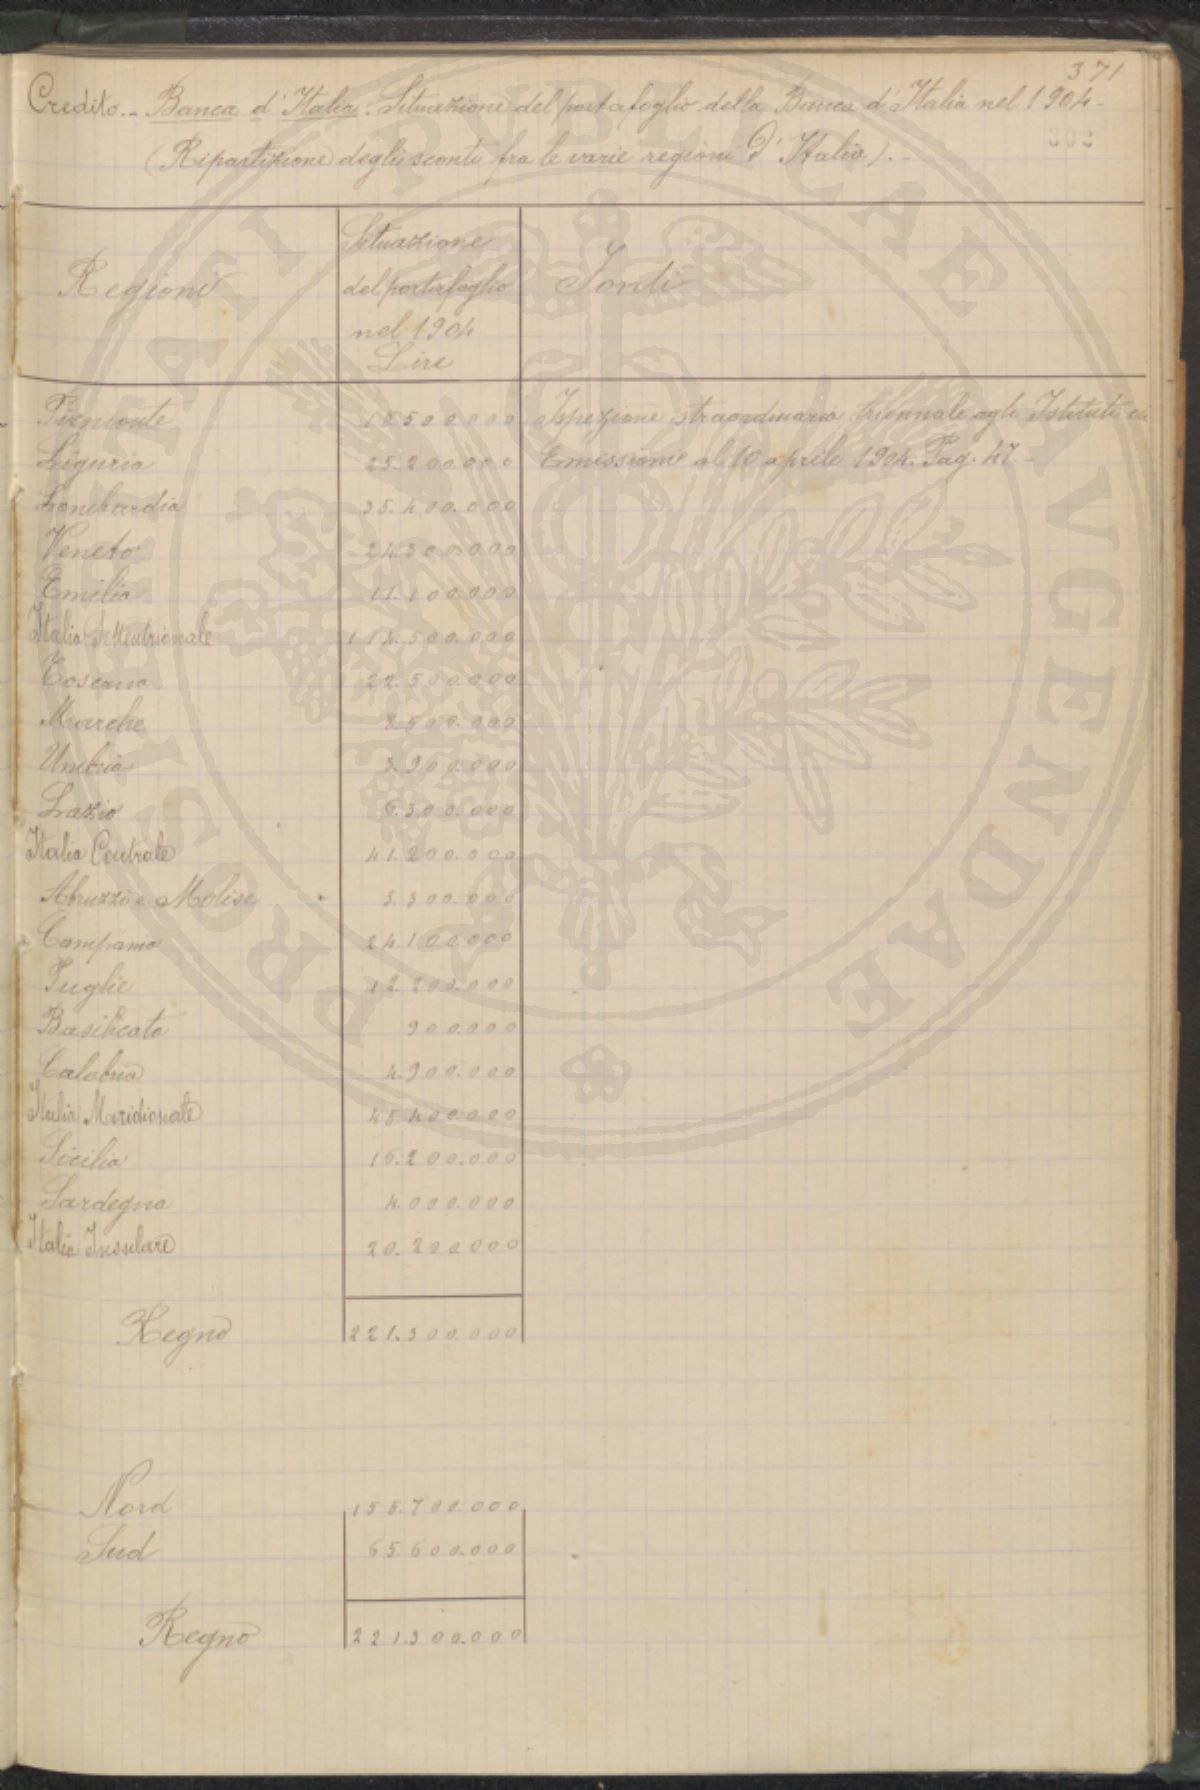 371
Credito. - Banca d'Italia. Situazione del portafoglio della Banca d'Italia nel 1904.
302
(Ripartizione degli sconti fra le varie regioni d'Italia). -
Regioni
Situazione
del portafoglio
nel 1904
Lire
Fonti
Piemonte 18.500.000 Ispezione straordinaria triennale agli Istituti di
Liguria 25.200.000 Emissione al 10 aprile 1904. Pag. 47. -
Lombardia 35.400.000
Veneto 24.300.000
Emilia 11.100.000
Italia Settentrionale 114.500.000
Toscana 22.500.000
Marche 8.500.000
Umbria 3.900.000
Lazio 6.300.000
Italia Centrale 41.200.000
Abruzzo e Molise 3.300.000
Campania 24.100.000
Puglie 12.200.000
Basilicata 900.000
Calabria 4.900.000
Italia Meridionale 45.400.000
Sicilia 16.200.000
Sardegna 4.000.000
Italia Insulare 20.200.000
Regno 221.300.000
Nord 155.700.000
Sud 65.600.000
Regno 221.300.000
PROSPERITATI PUBLICAE AVGENDAE